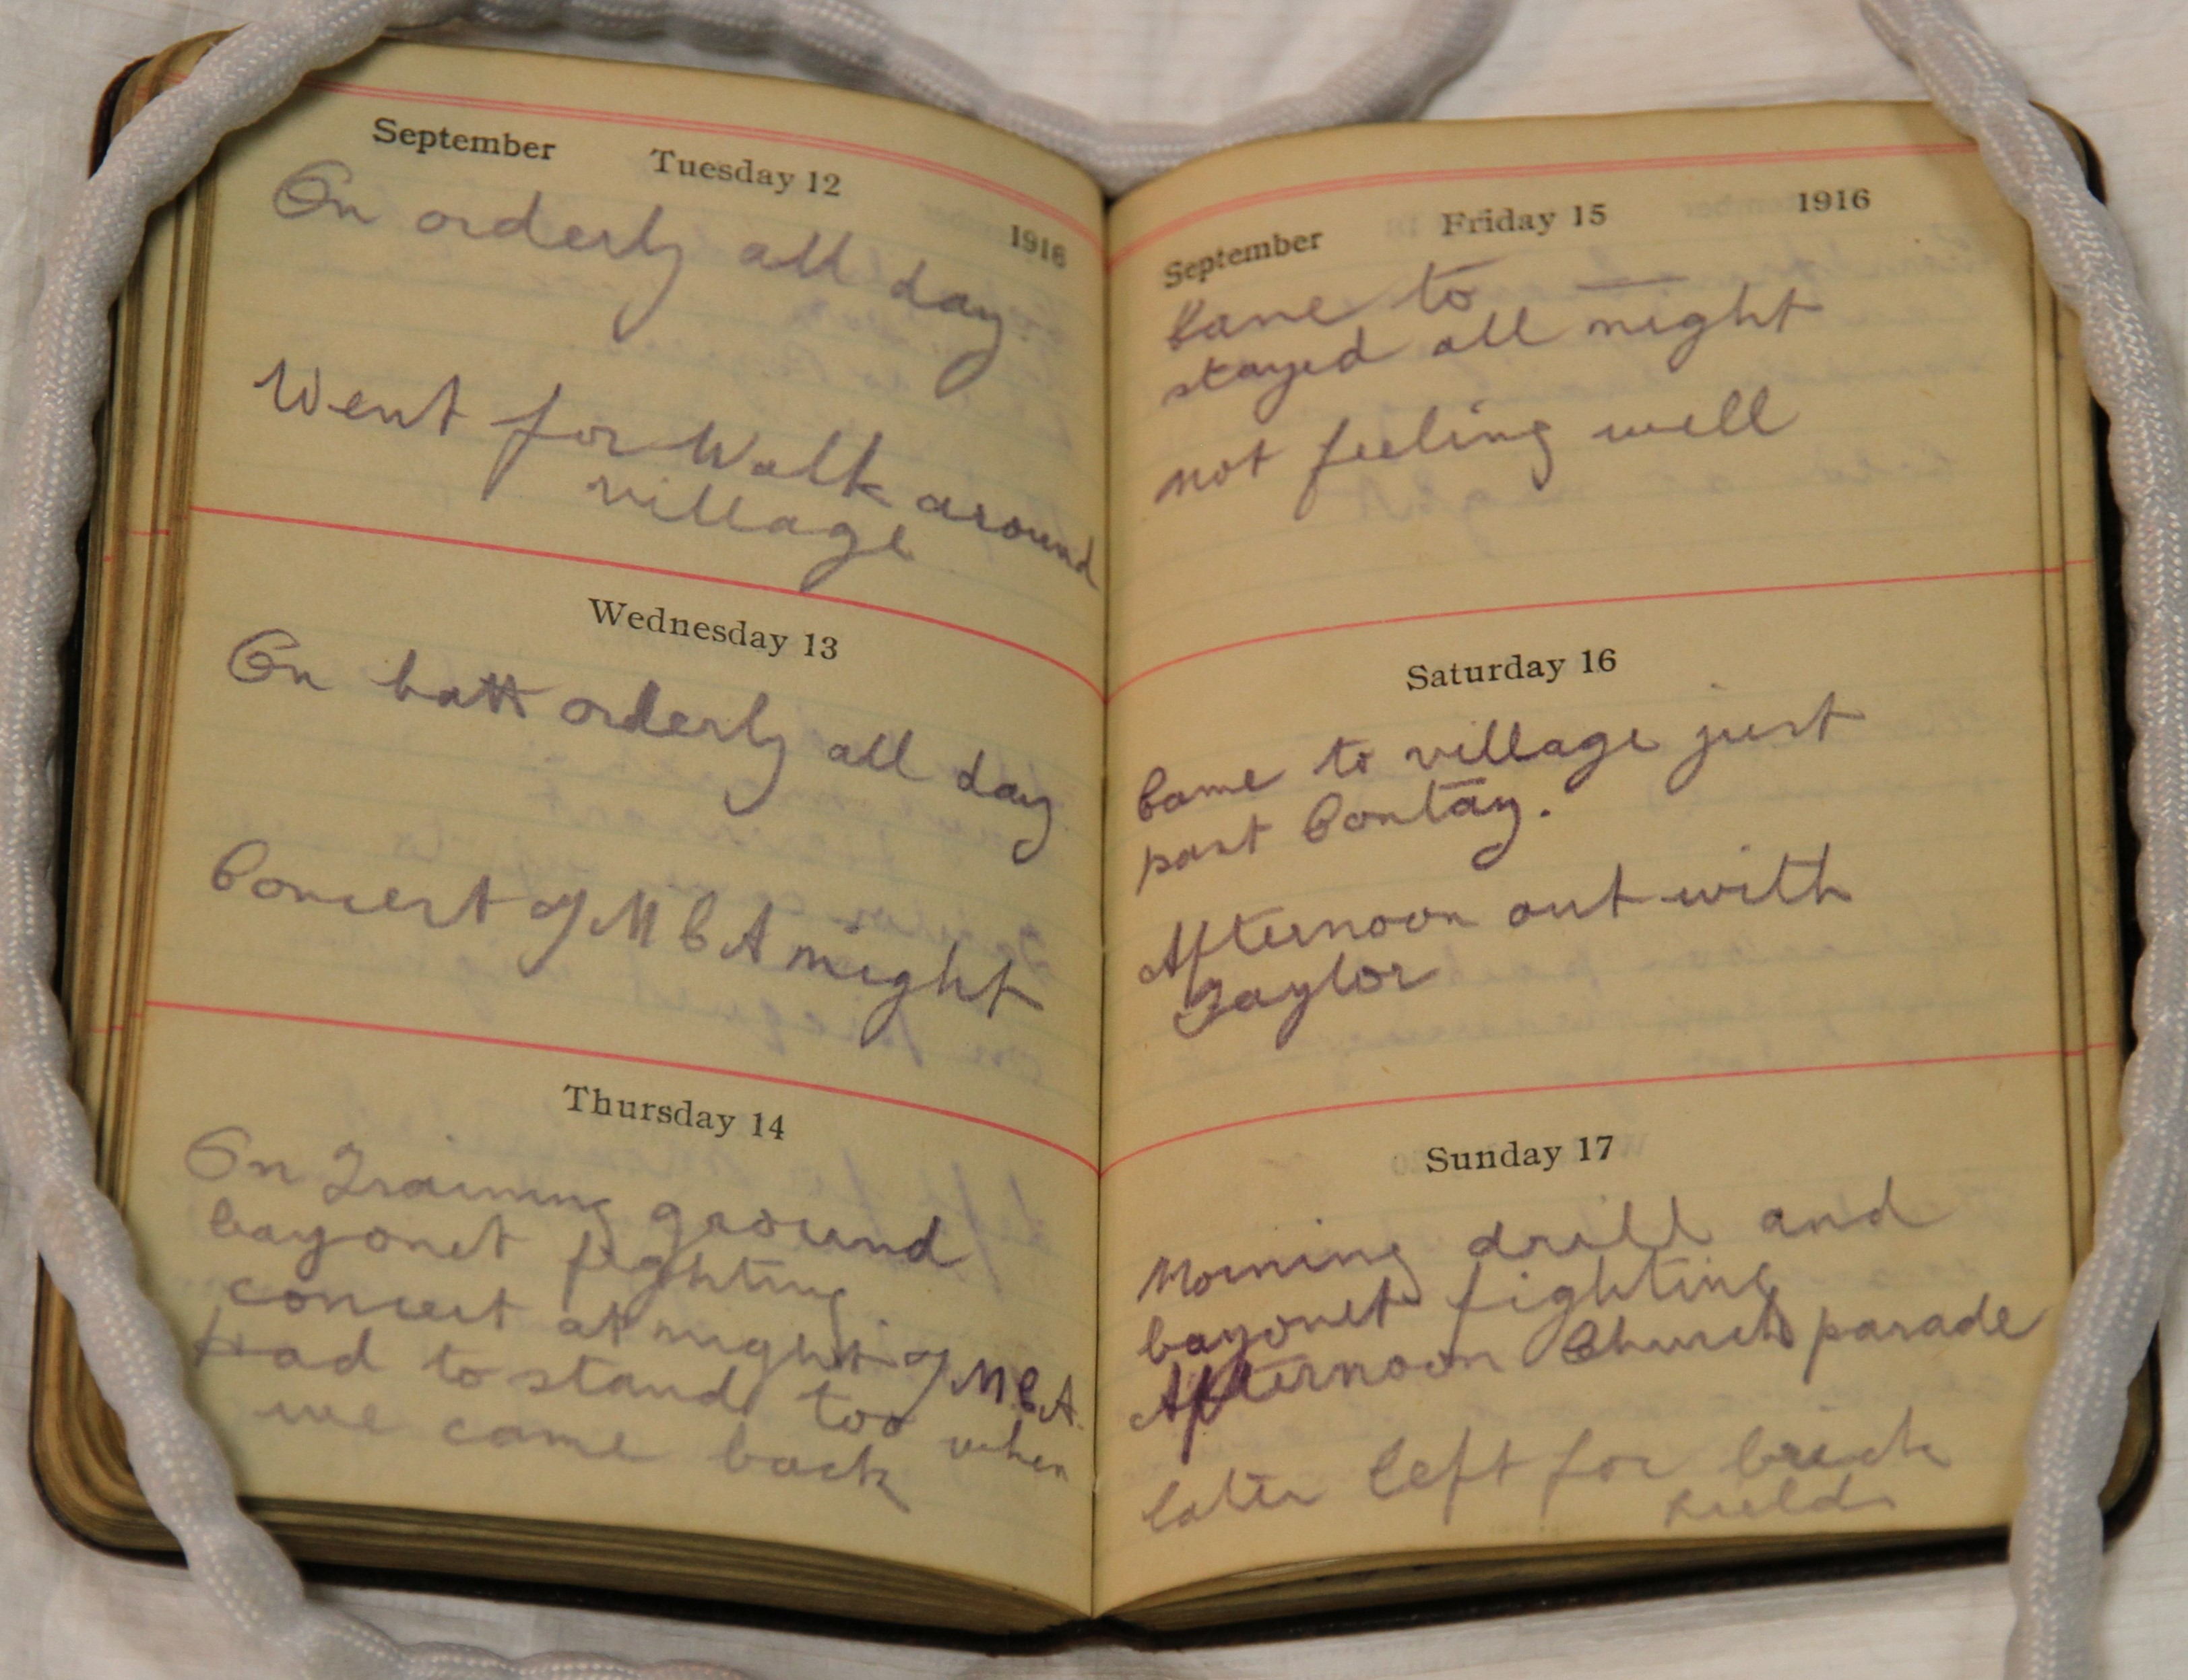 September Tuesday 12 1916
On orderly all day
Went for Walk around
village
Wednesday 13
On batt orderly all day
Concert YMCA night
Thursday 14
On Training ground
bayonet fighting
concert at night YMCA.
Had to stand too when
we came back
September Friday 15 1916
Came to —
stayed all night
not feeling well
Saturday 16
Came to village just
past Contay.
Afternoon out with
Taylor
Sunday 17
Morning drill and
bayonet fighting
Afternoon Church parade
later left for brick